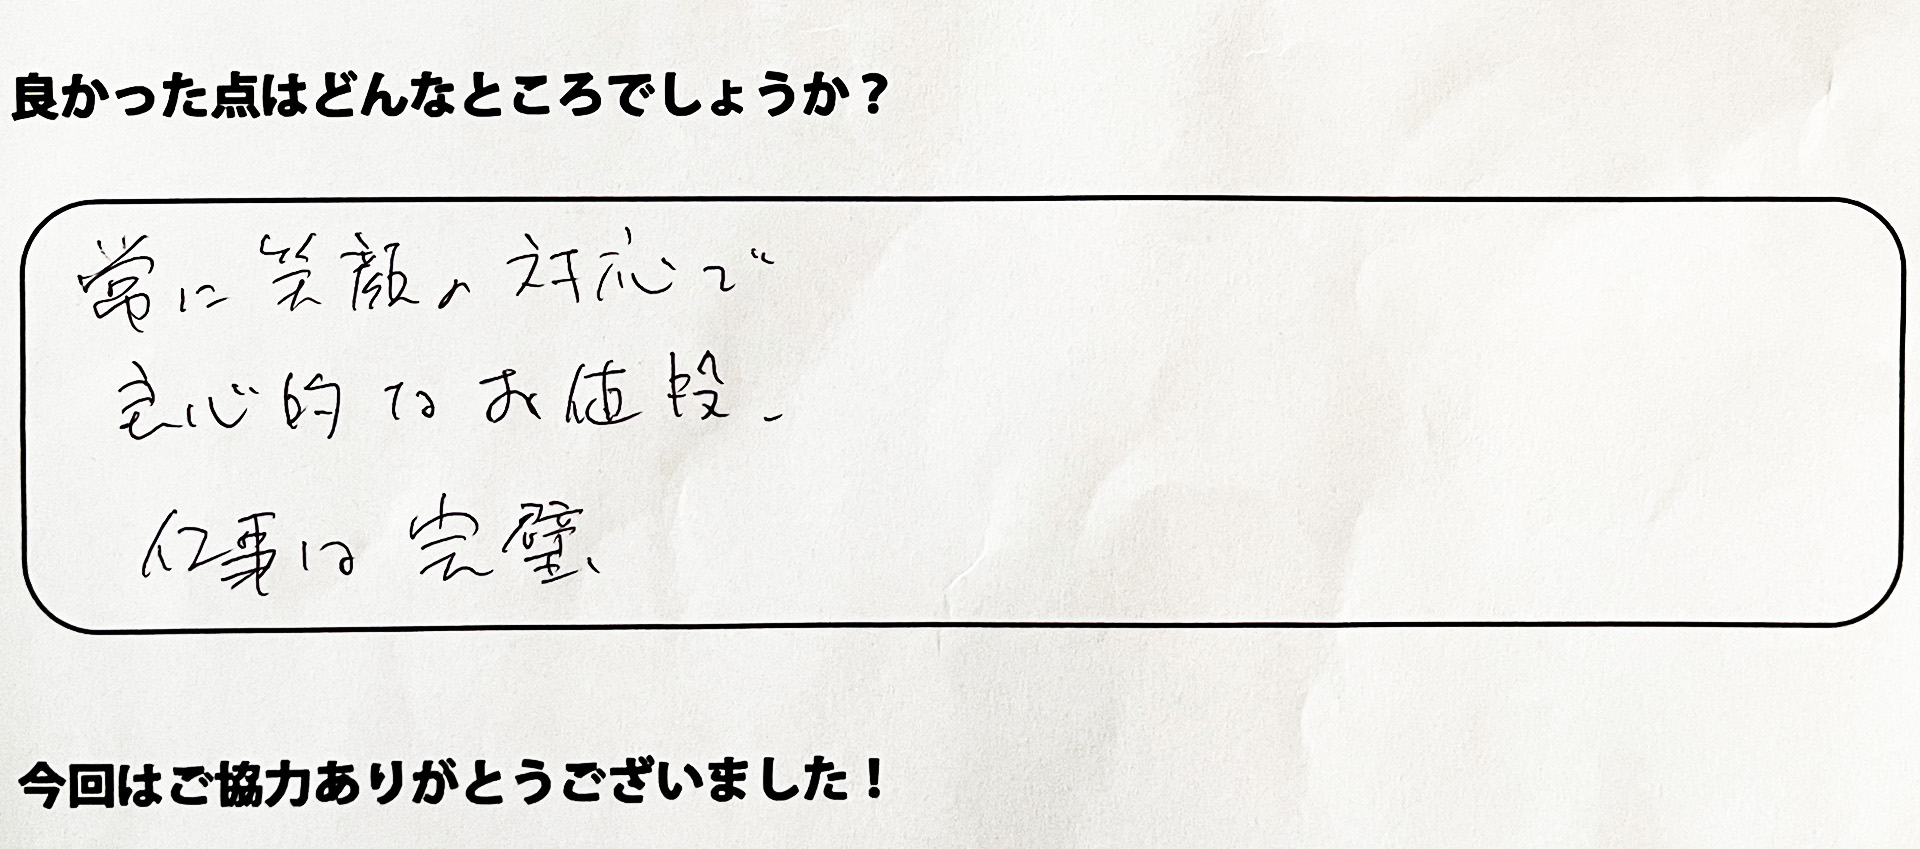 良かった点はどんなところでしょうか？
常に笑顔の対応で
良心的なお値段、
仕事は完璧、
今回はご協力ありがとうございました！